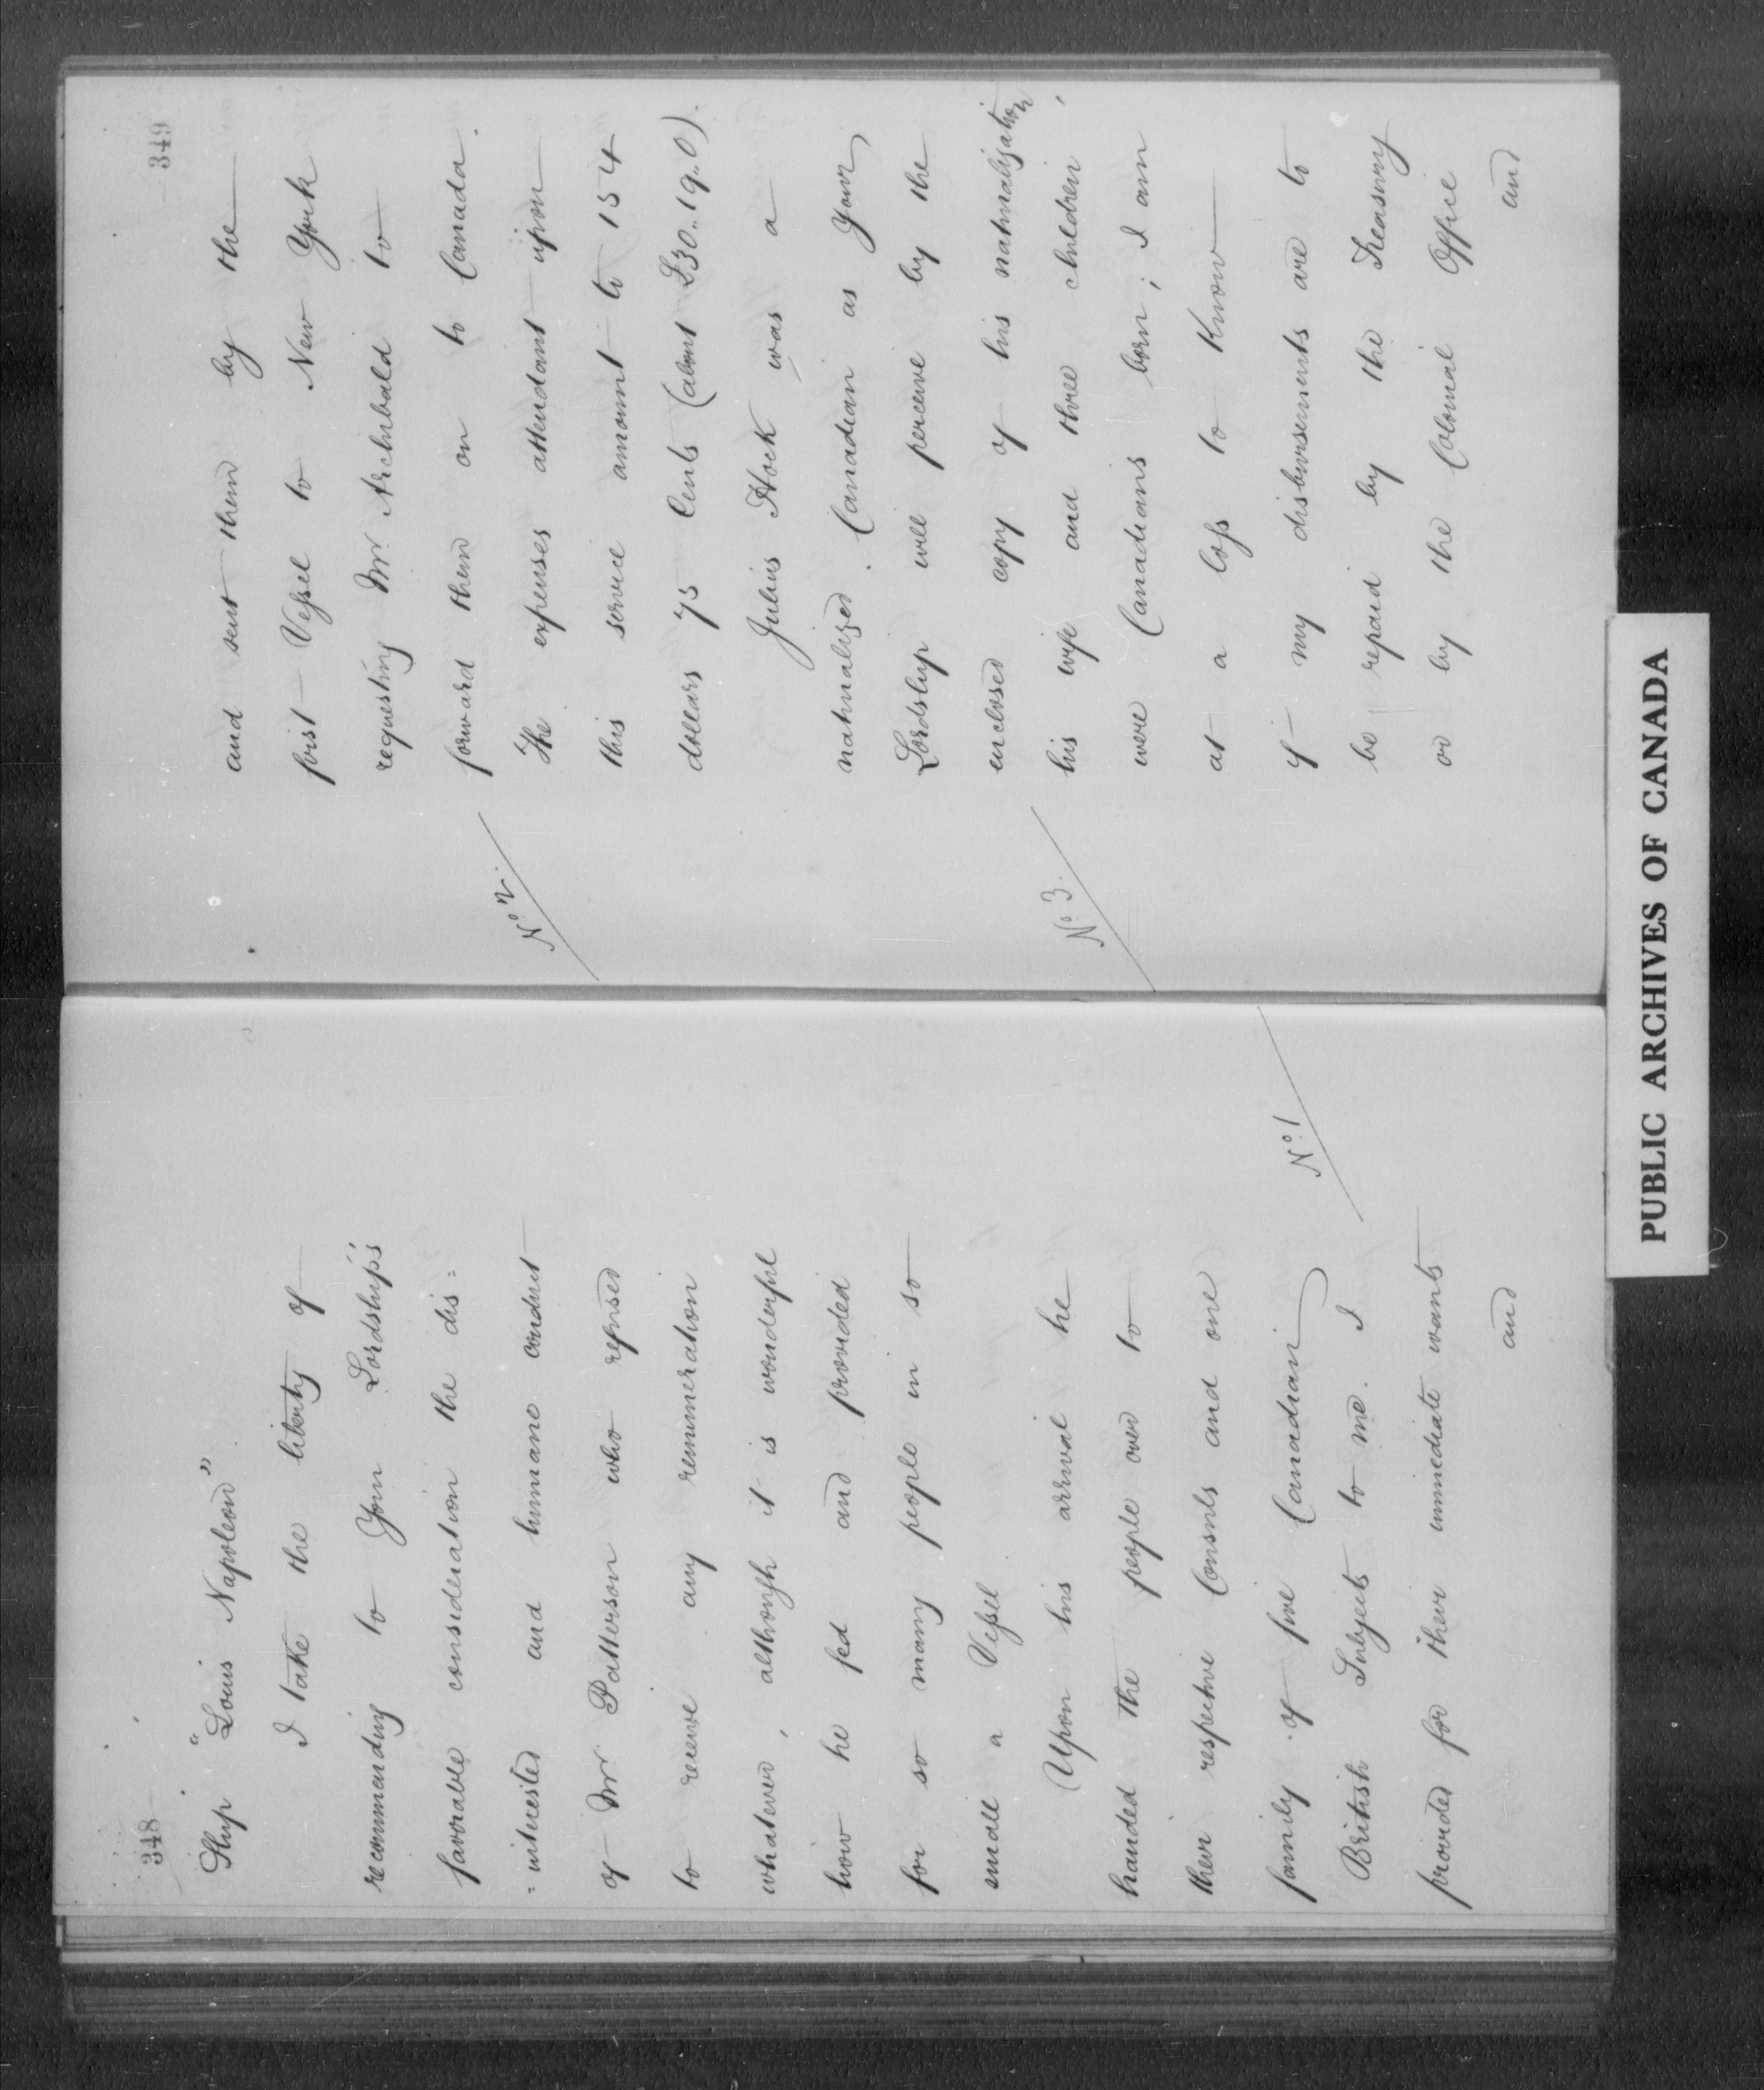 348
Ship "Louis Napoleon"
I take the liberty of
recommending to Your Lordship's
favorable consideration the dis=
=interested and humane conduct
of Mr Patterson who refused
to receive any remuneration
whatever, although it is wonderful
how he fed and provided
for so many people in so
small a Vessel.
Upon his arrival he
handed the people over to
their respective Consuls and one
family of five Canadian
British Subjects to me. I
provided for their immediate wants
and
No. 1
349
and sent them by the
first Vessel to New York
requesting Mr. Archibald to
forward them on to Canada.
The expenses attendant upon
this service amount to 154
dollars 75 Cents (about £30..19..0).
Julius Hock was a
naturalized Canadian as Your
Lordship will perceive by the
enclosed copy of his naturalization
his wife and three children,
were Canadians born; I am
at a loss to know
if my disbursements are to
be repaid by the Treasury
or by the Colonial Office
and
No. 2.
No. 3.
PUBLIC ARCHIVES OF CANADA